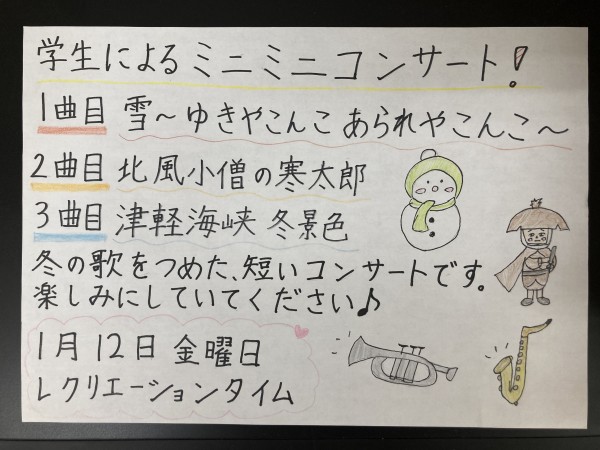 学生によるミニミニコンサート!
1曲目 雪〜ゆきやこんこ あられやこんこ〜
2曲目 北風小僧の寒太郎
3曲目 津軽海峡 冬景色
冬の歌をつめた、短いコンサートです。
楽しみにしていてください♪
1月12日 金曜日
レクリエーションタイム